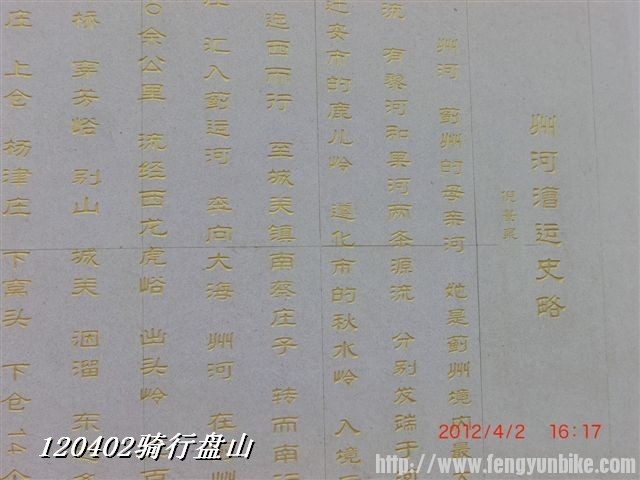 州河漕运史略
倪景泉
州河 蓟州的母亲河 她是蓟州境内最
流 有黎河和果河两条源流 分别发端于
迁安市的鹿儿岭 遵化市的秋水岭 入境
迤西而行 至城关镇南蔡庄子 转而南
汇入蓟运河 奔向大海 州河 在
〇余公里 流经西龙虎峪 出头岭
桥 穿芳峪 别山 城关 洇溜 东
庄 上仓 杨津庄 下窝头 下仓
120402骑行盘山
2012/4/2 16:17
http://www.fengyunbike.com